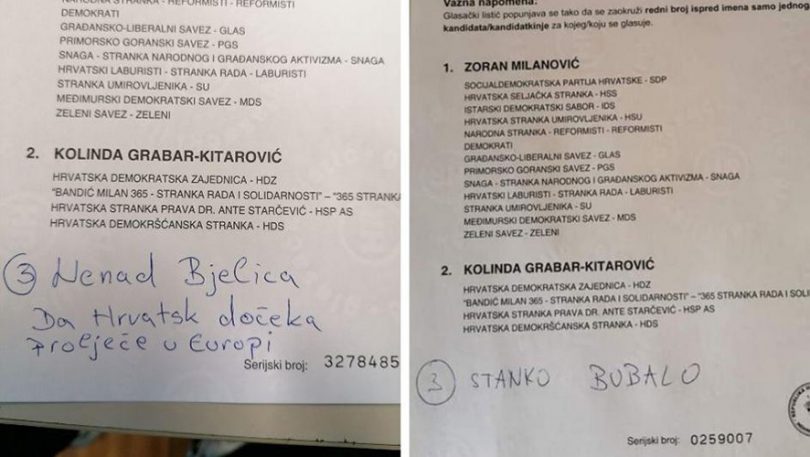 NARODNA STRANKA - REFORMISTI - REFORMISTI
DEMOKRATI
GRAĐANSKO-LIBERALNI SAVEZ - GLAS
PRIMORSKO GORANSKI SAVEZ - PGS
SNAGA - STRANKA NARODNOG I GRAĐANSKOG AKTIVIZMA - SNAGA
HRVATSKI LABURISTI - STRANKA RADA - LABURISTI
STRANKA UMIROVLJENIKA - SU
MEĐIMURSKI DEMOKRATSKI SAVEZ - MDS
ZELENI SAVEZ - ZELENI
2. KOLINDA GRABAR-KITAROVIĆ
HRVATSKA DEMOKRATSKA ZAJEDNICA - HDZ
"BANDIĆ MILAN 365 - STRANKA RADA I SOLIDARNOSTI" – "365 STRANKA
HRVATSKA STRANKA PRAVA DR. ANTE STARČEVIĆ - HSP AS
HRVATSKA DEMOKRŠĆANSKA STRANKA - HDS
3 Nenad Bjelica
Da Hrvatsk dočeka
proljeće u Europi
Serijski broj: 3278485
Važna napomena:
Glasački listić popunjava se tako da se zaokruži redni broj ispred imena samo jednog
kandidata/kandidatkinje za kojeg/koju se glasuje.
1. ZORAN MILANOVIĆ
SOCIJALDEMOKRATSKA PARTIJA HRVATSKE - SDP
HRVATSKA SELJAČKA STRANKA - HSS
ISTARSKI DEMOKRATSKI SABOR - IDS
HRVATSKA STRANKA UMIROVLJENIKA - HSU
NARODNA STRANKA - REFORMISTI - REFORMISTI
DEMOKRATI
GRAĐANSKO-LIBERALNI SAVEZ - GLAS
PRIMORSKO GORANSKI SAVEZ - PGS
SNAGA - STRANKA NARODNOG I GRAĐANSKOG AKTIVIZMA - SNAGA
HRVATSKI LABURISTI - STRANKA RADA - LABURISTI
STRANKA UMIROVLJENIKA - SU
MEĐIMURSKI DEMOKRATSKI SAVEZ - MDS
ZELENI SAVEZ - ZELENI
2. KOLINDA GRABAR-KITAROVIĆ
HRVATSKA DEMOKRATSKA ZAJEDNICA - HDZ
"BANDIĆ MILAN 365 - STRANKA RADA I SOLIDARNOSTI" – "365 STRANKA RADA I SOLI
HRVATSKA STRANKA PRAVA DR. ANTE STARČEVIĆ - HSP AS
HRVATSKA DEMOKRŠĆANSKA STRANKA - HDS
3 STANKO BUBALO
Serijski broj: 0259007